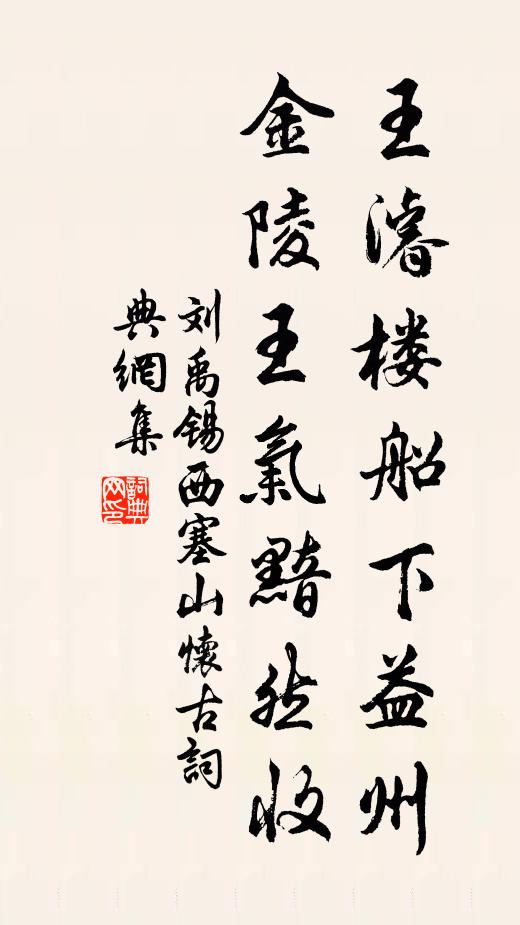 王濬楼船下益州
金陵王氣黯然收
刘禹锡西塞山懷古詞
典網集
詞典
网印